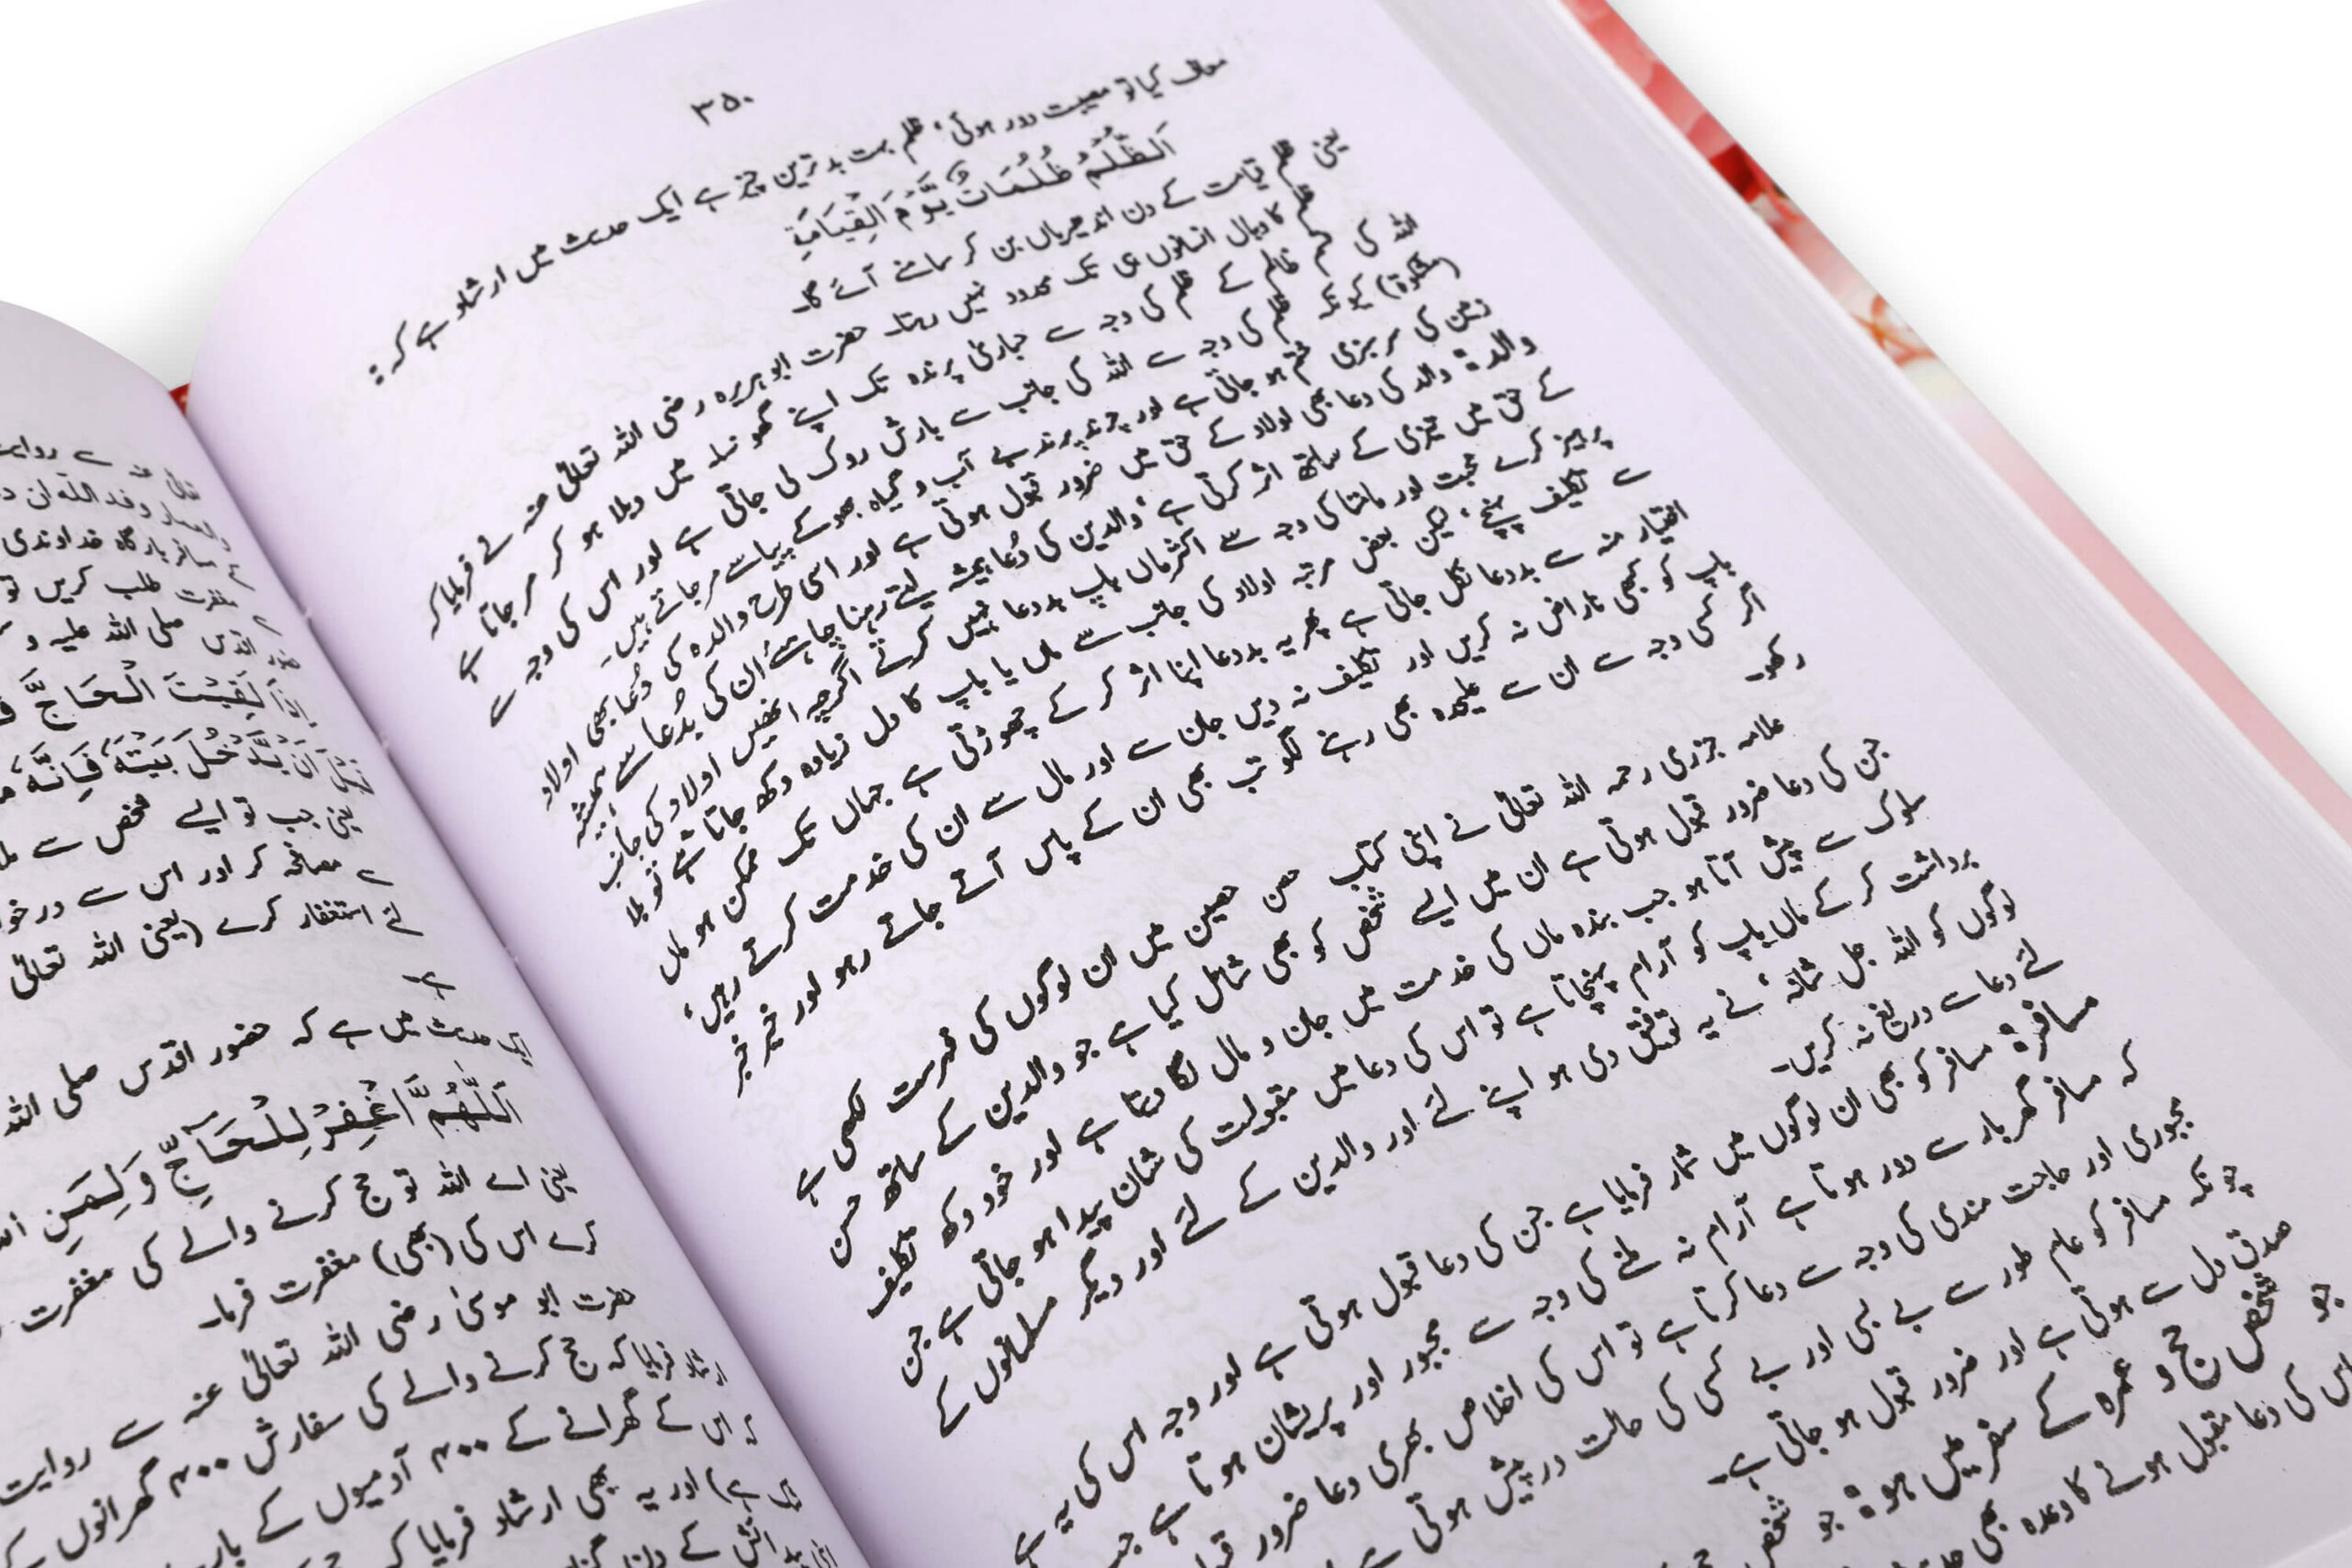 ۳۵۰
معاف کیا تو مصیبت دور ہوئی، ظلم بہت بدترین چیز ہے ایک حدیث میں ارشاد ہے کہ:
اَلظُّلْمُ ظُلُمَاتٌ یَّوْمَ الْقِیَامَةِ
یعنی ظلم قیامت کے دن اندھیریاں بن کر سامنے آئے گا۔
ظلم کا وبال انسانوں ہی تک محدود نہیں رہتا۔ حضرت ابو ہریرہ رضی اللہ تعالیٰ عنہ نے فرمایا کہ
اللہ کی قسم ظالم کے ظلم کی وجہ سے حباریٰ پرندہ تک اپنے گھونسلہ میں دبلا ہو کر مر جاتا ہے
(مشکوٰۃ) کیونکہ ظلم کی وجہ سے اللہ کی جانب سے بارش روک لی جاتی ہے اور اس کی وجہ سے
زمین کی سرسبزی ختم ہو جاتی ہے اور چرند پرند بے آب و گیاہ بھوکے پیاسے مر جاتے ہیں۔
والدہ: والد کی دعا بھی اولاد کے حق میں ضرور قبول ہوتی ہے اور اسی طرح والدہ کی دُعا بھی اولاد
کے حق میں تیزی کے ساتھ اثر کرتی ہے، والدین کی دُعا ہمیشہ لیتے رہنا چاہئے اُن کی بدُعا سے ہمیشہ
پرہیز کرے محبت اور مامتا کی وجہ سے اکثر ماں باپ بددعا نہیں کرتے اگرچہ انھیں اولاد کی جانب
سے تکلیف پہنچے، لیکن بعض مرتبہ اولاد کی جانب سے ماں یا باپ کا دل زیادہ دکھ جاتا ہے تو بلا
اختیار منہ سے بددعا نکل جاتی ہے پھر یہ بددعا اپنا اثر کر کے چھوڑتی ہے جہاں تک ممکن ہو ماں
باپ کو کبھی ناراض نہ کریں اور تکلیف نہ دیں جان سے اور مال سے ان کی خدمت کرتے رہیں،
اگر کسی وجہ سے ان سے علیحدہ بھی رہنے لگو تب بھی ان کے پاس آتے جاتے رہو اور خیر خبر
رکھو۔
علامہ جزری رحمہ اللہ تعالیٰ نے اپنی کتاب حصن حصین میں ان لوگوں کی فہرست لکھی ہے
جن کی دعا ضرور قبول ہوتی ہے ان میں ایسے شخص کو بھی شامل کیا ہے جو والدین کے ساتھ حسن
سلوک سے پیش آتا ہو جب بندہ ماں کی خدمت میں جان و مال لگا دیتا ہے اور خود دکھ تکلیف
برداشت کر کے ماں باپ کو آرام پہنچاتا ہے تو اس کی دعا میں مقبولیت کی شان پیدا ہو جاتی ہے جن
لوگوں کو اللہ جل شانہٗ نے یہ توفیق دی ہو اپنے لئے اور والدین کے لئے اور دیگر مسلمانوں کے
لئے دعا سے دریغ نہ کریں۔
مسافر: مسافر کو بھی ان لوگوں میں شمار فرمایا ہے جن کی دعا قبول ہوتی ہے اور وجہ اس کی یہ ہے
کہ مسافر گھر بار سے دور ہوتا ہے آرام نہ ملنے کی وجہ سے مجبور اور پریشان ہوتا ہے جب
مجبوری اور حاجت مندی کی وجہ سے دعا کرتا ہے تو اس کی اخلاص بھری دعا ضرور
چونکہ مسافر کو عام طور سے بے بسی اور بے کسی کی حالت درپیش ہوتی ہے
صدق دل سے ہوتی ہے اور ضرور قبول ہو جاتی ہے۔
جو شخص حج و عمرہ کے سفر میں ہو: جو شخص
اس کی دعا مقبول ہونے کا وعدہ بھی
تعالیٰ عنہ سے روایت
والعمار وفد اللہ ان
مسافر بارگاہ خداوندی
مغفرت طلب کریں تو
حضور اقدس صلی اللہ علیہ و
اِذَا لَقِیْتَ الْحَاجَّ
قَبْلَ اَنْ یَّدْخُلَ بَیْتَهٗ فَاِنَّهٗ
یعنی جب تو ایسے شخص سے
سے مصافحہ کر اور اس سے
لئے استغفار کرے (یعنی اللہ تعالیٰ
ہے
ایک حدیث میں ہے کہ حضور اقدس صلی اللہ
اَللّٰهُمَّ اغْفِرْ لِلْحَآجِّ وَلِمَنِ
یعنی اے اللہ تو حج کرنے والے کی مغفرت
کرے اس کی (بھی) مغفرت فرما۔
حضرت ابو موسیٰ رضی اللہ تعالیٰ عنہ سے روایت
ارشاد فرمایا کہ حج کرنے والے کی سفارش ۴۰۰ گھرانوں
کہ اس کے گھرانے کے ۴۰۰ آدمیوں کے
ہے) اور یہ بھی ارشاد فرمایا